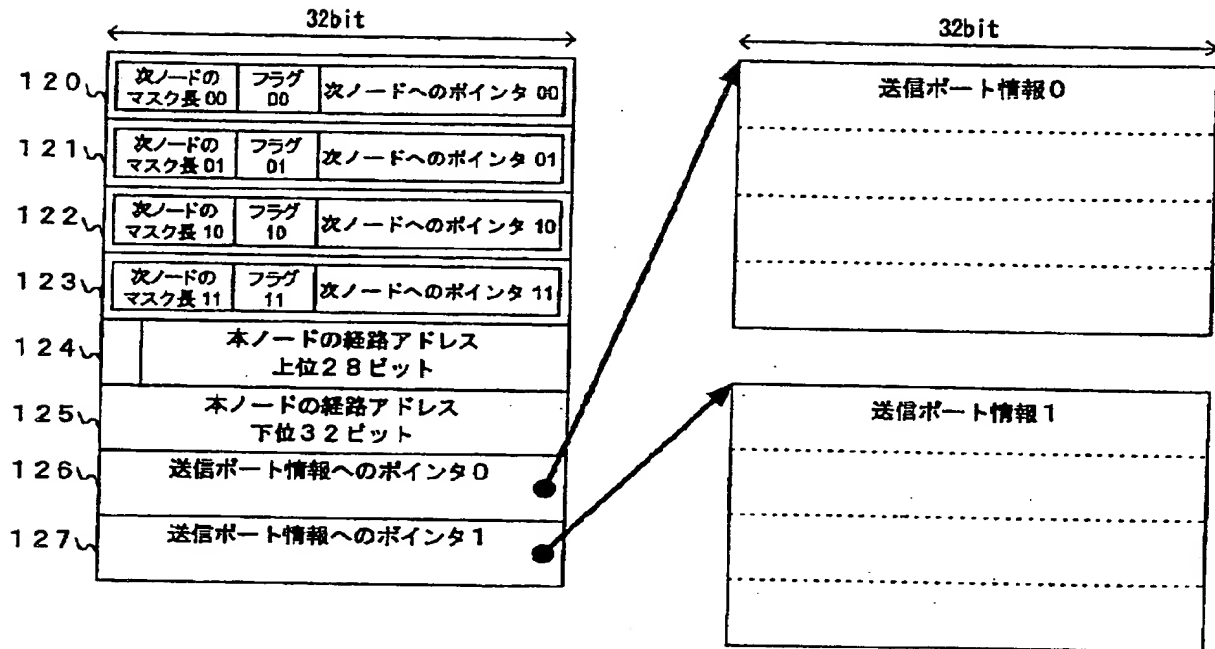 32bit
32bit
120
次ノードの
マスク長00
フラグ
00
次ノードへのポインタ 00
121
次ノードの
マスク長01
フラグ
01
次ノードへのポインタ 01
122
次ノードの
マスク長10
フラグ
10
次ノードへのポインタ 10
123
次ノードの
マスク長11
フラグ
11
次ノードへのポインタ 11
124
本ノードの経路アドレス
上位28ビット
125
本ノードの経路アドレス
下位32ビット
126
送信ポート情報へのポインタ0
127
送信ポート情報へのポインタ1
送信ポート情報0
送信ポート情報1